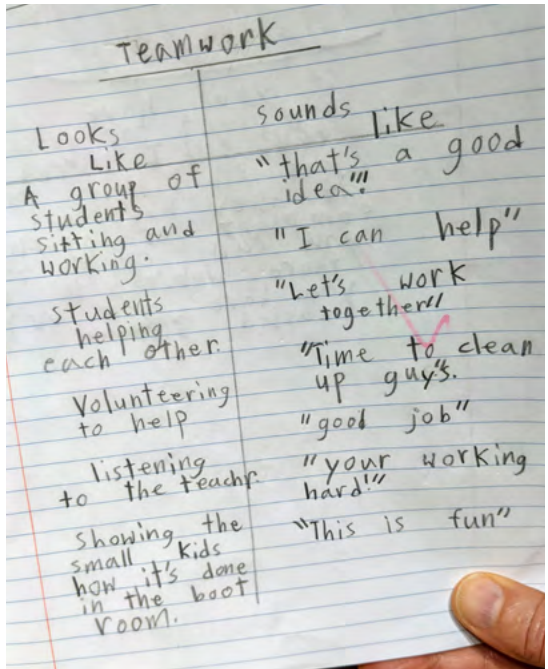 Teamwork
Looks
Like
A group of
students
sitting and
working.
students
helping
each other.
Volunteering
to help
listening
to the teachr.
showing the
small kids
how it's done
in the boot
room.
sounds like
"that's a good
idea"!
"I can help"
"Let's work
together"
"Time to clean
up guys".
"good job"
"your working
hard!"
"This is fun"